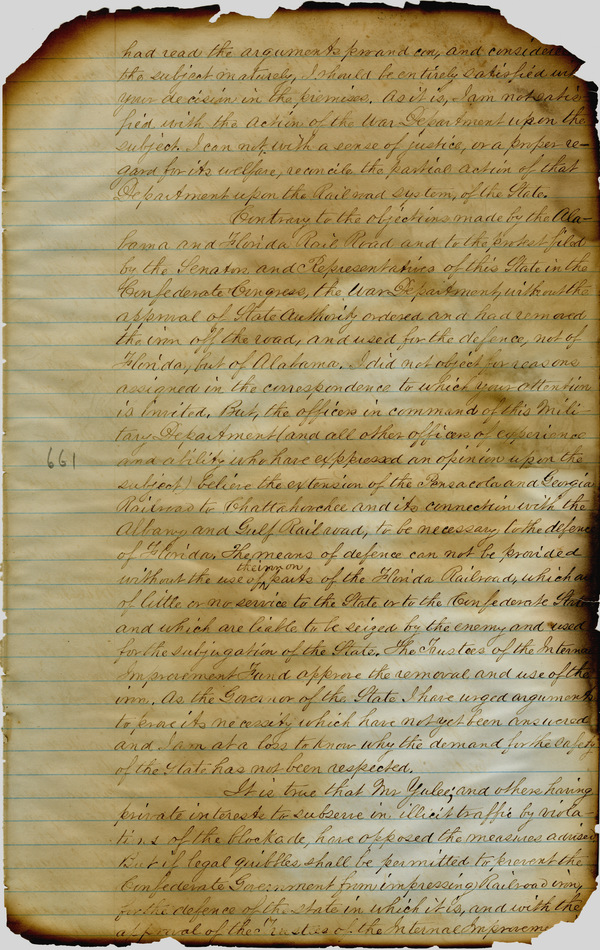 had read the arguments pro and con, and considere
the subject maturely, I should be entirely satisfied wi
your decision in the premises. As it is, I am not satis-
fied with the action of the War Department upon the
subject. I can not, with a sense of justice, or a proper re-
gard for its welfare, reconcile the partial action of that
Department upon the Rail road system, of the State.
Contrary to the objections made by the Ala-
bama and Florida Rail Road and to the protest filed
by the Senators and Representatives of this State in the
Confederate Congress, the War Department, without the
approval of State Authority ordered and had removed
the iron off the road, and used for the defence, not of
Florida, but of Alabama. I did not object for reasons
assigned in the correspondence to which your attention
is invited. But, the officers in command of this Mili-
tary Department (and all other officers of experience
and ability who have expressed an opinion upon the
661
subject) believe the extension of the Pensacola and Georgia
Railroad to Chattahoochee and its connection with the
Albany and Gulf Rail road, to be necessary to the defence
of Florida. The means of defence can not be provided
the iron on
without the use of parts of the Florida Railroad, which are
of little or no service to the State or to the Confederate State
and which are liable to be seized by the enemy and used
for the subjugation of the State. The Trustees of the Interna
Improvement Fund approve the removal and use of the
iron. As the Governor of the State I have urged arguments
to prove its necessity which have not yet been answered
and I am at a loss to know why the demand for the safety
of the State has not been respected.
It is true that Mr Yulee, and others having
private interests to subserve in illicit traffic by viola-
tions of the blockade, have opposed the measures advised
But if legal quibbles shall be permitted to prevent the
Confederate Government from impressing Railroad iron,
for the defence of the state in which it is, and with the
approval of the Trustees of the Internal Improveme